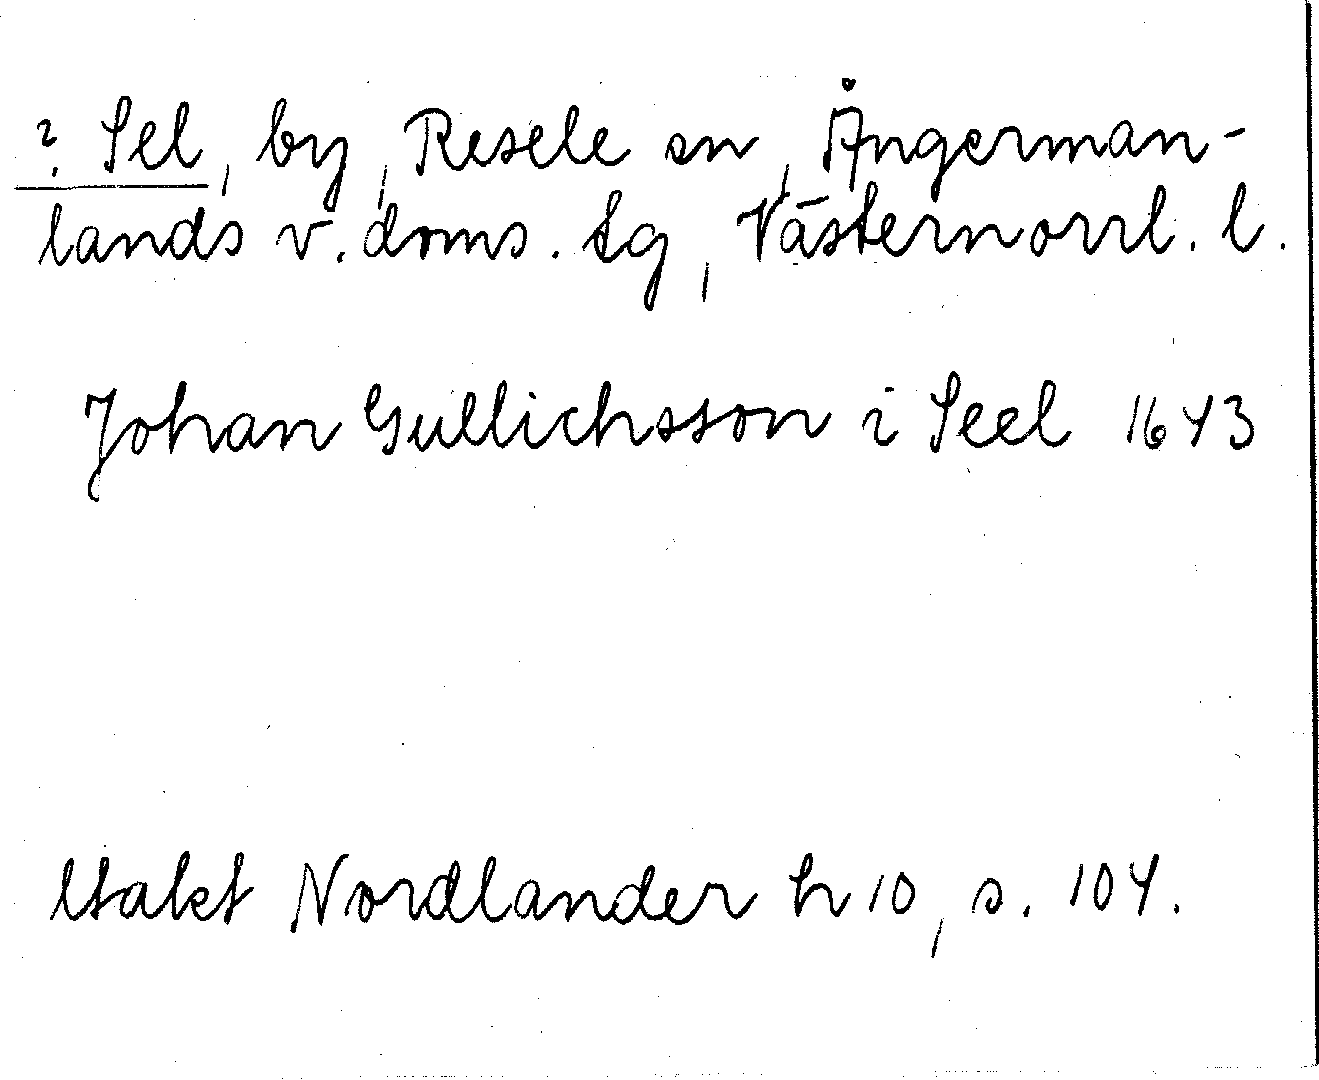 ? Sel, by, Resele sn, Ångerman-
lands v. doms. tg, Västernorrl. l.
Johan Gullichsson i Seel 1643
Utakt Nordlander h 10, s. 104.